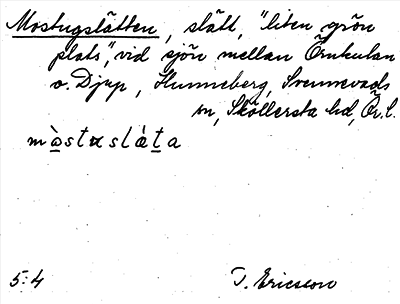 Mostugslätten, slätt, "liten grön
plats", vid sjön mellan Örnkulan
o. Djup, Hunneberg, Svennevads
sn, Sköllersta hd, Ör. l.
5:4 T. Ericsson